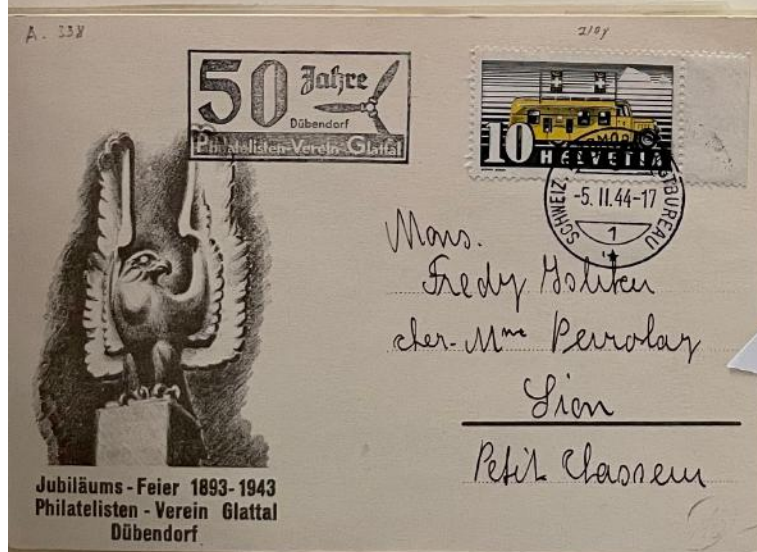 A. 338
50 Jahre
Dübendorf
Philatelisten-Verein Glattal
10 HELVETIA
SCHWEIZ. POSTBUREAU
-5. II. 44-17
1
Mons.
Fredy
chez Mme
Sion
Petit Chasseur
Jubiläums-Feier 1893-1943
Philatelisten-Verein Glattal
Dübendorf